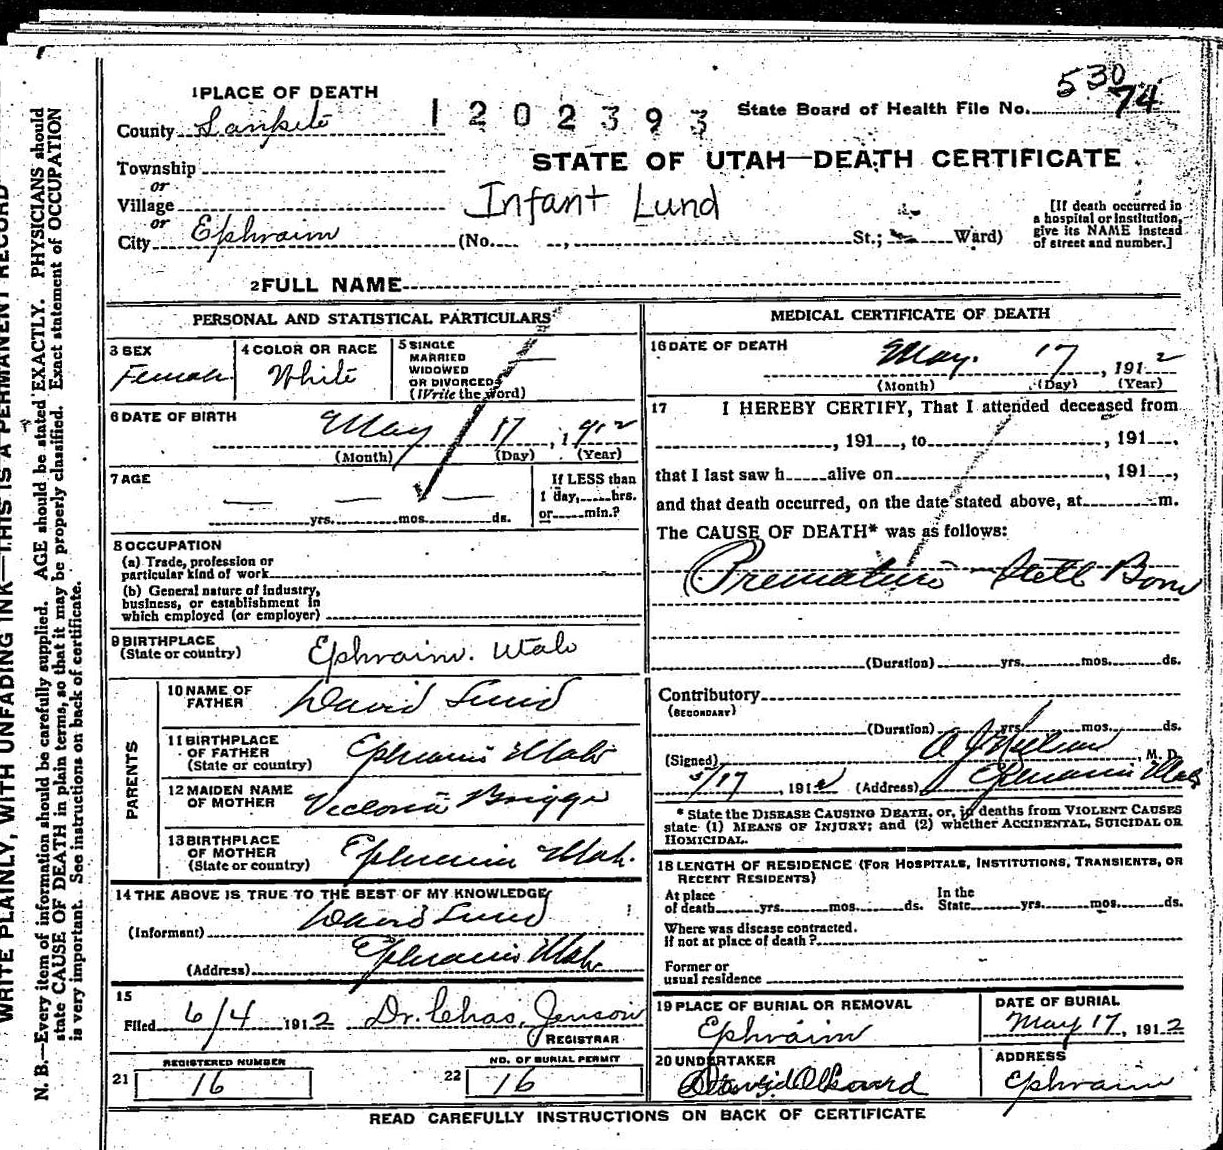 530
74
1 PLACE OF DEATH
1202393
State Board of Health File No.
County Sanpete
STATE OF UTAH—DEATH CERTIFICATE
Township
or
Village
Infant Lund
or
City Ephraim (No. , St.; Ward)
[If death occurred in a hospital or institution, give its NAME instead of street and number.]
2 FULL NAME
PERSONAL AND STATISTICAL PARTICULARS
3 SEX
Female
4 COLOR OR RACE
White
5 SINGLE
MARRIED
WIDOWED
OR DIVORCED
(Write the word)
6 DATE OF BIRTH
May 17, 1912
(Month) (Day) (Year)
7 AGE
If LESS than
1 day, hrs.
yrs. mos. ds. or min.?
8 OCCUPATION
(a) Trade, profession or
particular kind of work
(b) General nature of industry,
business, or establishment in
which employed (or employer)
9 BIRTHPLACE
(State or country) Ephraim. Utah
PARENTS
10 NAME OF
FATHER David Lund
11 BIRTHPLACE
OF FATHER
(State or country) Ephraim Utah
12 MAIDEN NAME
OF MOTHER Victoria Briggs
13 BIRTHPLACE
OF MOTHER
(State or country) Ephraim Utah.
14 THE ABOVE IS TRUE TO THE BEST OF MY KNOWLEDGE
(Informant) David Lund
(Address) Ephraim Utah.
15
Filed 6/4 1912 Dr. Chas. Jenson
REGISTRAR
REGISTERED NUMBER
21 16
NO. OF BURIAL PERMIT
22 16
MEDICAL CERTIFICATE OF DEATH
16 DATE OF DEATH
May. 17, 1912
(Month) (Day) (Year)
17 I HEREBY CERTIFY, That I attended deceased from
, 191 , to , 191 ,
that I last saw h alive on , 191 ,
and that death occurred, on the date stated above, at m.
The CAUSE OF DEATH* was as follows:
Premature Still Born
(Duration) yrs. mos. ds.
Contributory
(SECONDARY)
(Duration) yrs. mos. ds.
(Signed) M. D.
5/17, 1912 (Address) Ephraim Utah
* State the DISEASE CAUSING DEATH, or, in deaths from VIOLENT CAUSES
state (1) MEANS OF INJURY; and (2) whether ACCIDENTAL, SUICIDAL OR
HOMICIDAL.
18 LENGTH OF RESIDENCE (FOR HOSPITALS, INSTITUTIONS, TRANSIENTS, OR
RECENT RESIDENTS)
At place
of death yrs. mos. ds.
In the
State yrs. mos. ds.
Where was disease contracted.
If not at place of death?
Former or
usual residence
19 PLACE OF BURIAL OR REMOVAL
Ephraim
DATE OF BURIAL
May 17, 1912
20 UNDERTAKER
ADDRESS
Ephraim
READ CAREFULLY INSTRUCTIONS ON BACK OF CERTIFICATE
WRITE PLAINLY, WITH UNFADING INK—THIS IS A PERMANENT RECORD
N. B.—Every item of information should be carefully supplied. AGE should be stated EXACTLY. PHYSICIANS should
state CAUSE OF DEATH in plain terms, so that it may be properly classified. Exact statement of OCCUPATION
is very important. See instructions on back of certificate.